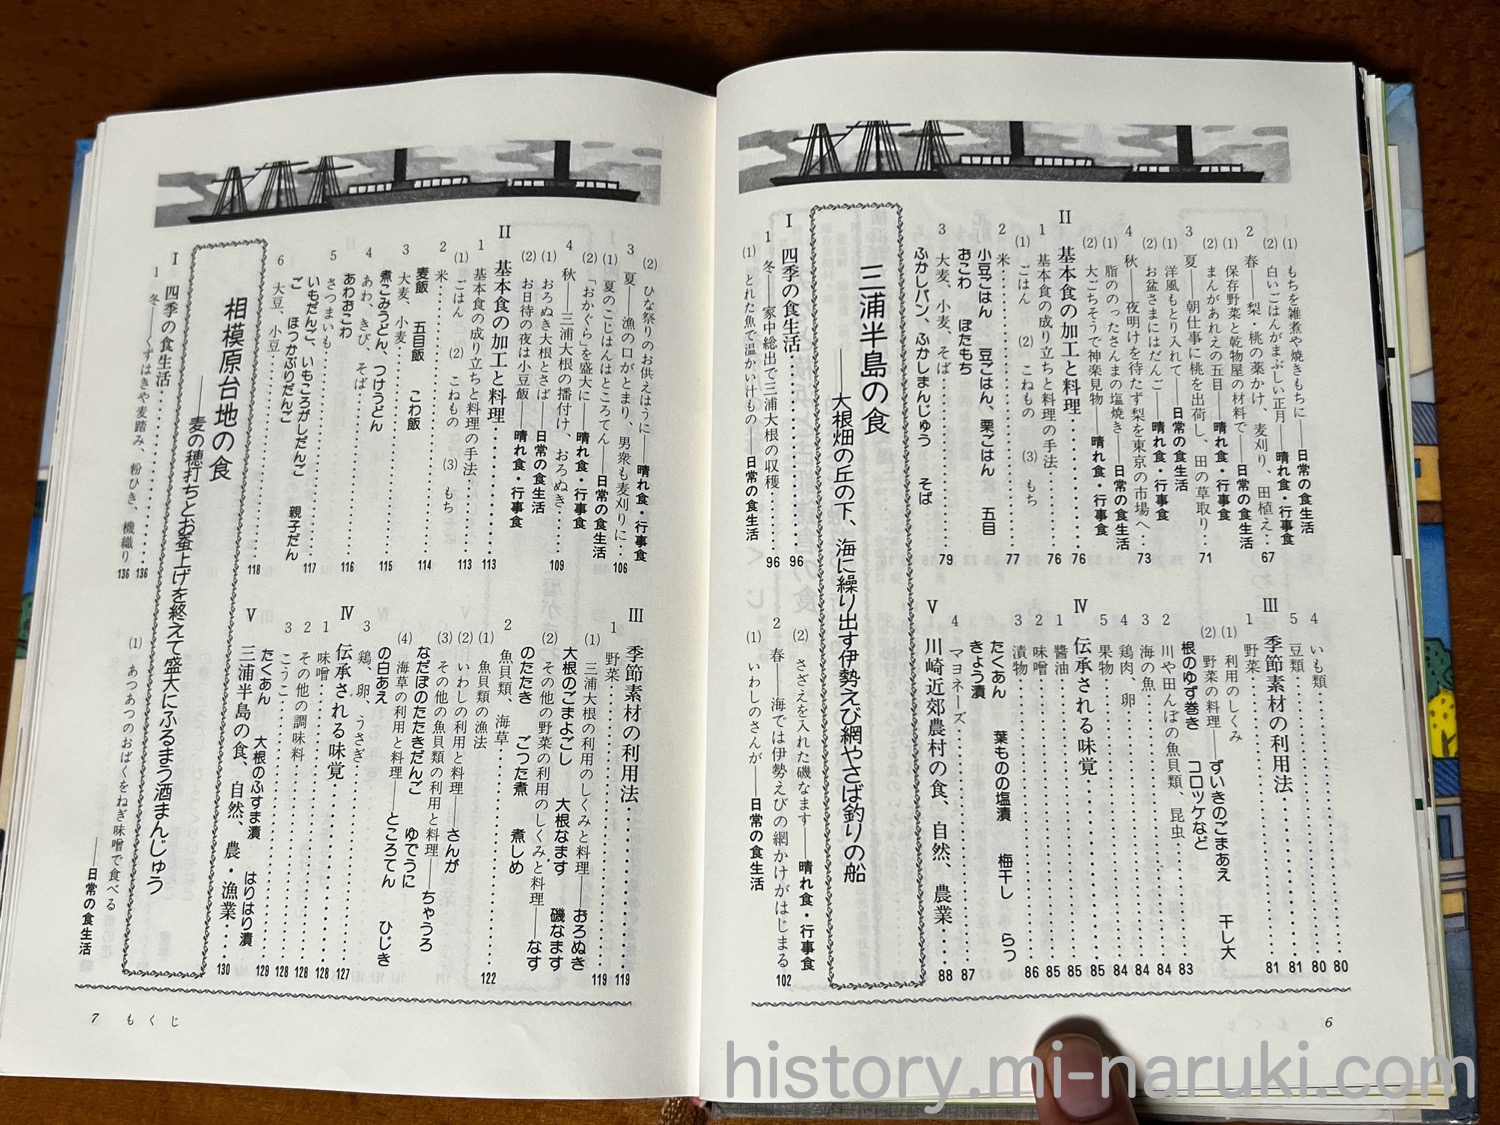 (1) もちを雑煮や焼きもちに——日常の食生活
(2) 白いごはんがまぶしい正月——晴れ食・行事食
2 春——梨・桃の薬かけ、麦刈り、田植え…67
(1) 保存野菜と乾物屋の材料で——日常の食生活
(2) まんがあれえの五目——晴れ食・行事食
3 夏——朝仕事に桃を出荷し、田の草取り…71
(1) 洋風もとり入れて——日常の食生活
(2) お盆さまにはだんご——晴れ食・行事食
4 秋——夜明けを待たず梨を東京の市場へ…73
(1) 脂ののったさんまの塩焼き——日常の食生活
(2) 大ごちそうで神楽見物——晴れ食・行事食
II 基本食の加工と料理…76
1 基本食の成り立ちと料理の手法…76
(1) ごはん (2) こねもの (3) もち
2 米…77
小豆ごはん 豆ごはん、栗ごはん 五目
おこわ ぼたもち
3 大麦、小麦、そば…79
ふかしパン、ふかしまんじゅう そば
4 いも類…80
5 豆類…80
III 季節素材の利用法…81
1 野菜…81
(1) 利用のしくみ
(2) 野菜の料理——ずいきのごまあえ 干し大
根のゆず巻き コロッケなど
2 川や田んぼの魚貝類、昆虫…83
3 海の魚…84
4 鶏肉、卵…84
5 果物…84
IV 伝承される味覚…85
1 醬油…85
2 味噌…85
3 漬物…86
たくあん 葉ものの塩漬 梅干し らっ
きょう漬
4 マヨネーズ…87
V 川崎近郊農村の食、自然、農業…88
三浦半島の食
——大根畑の丘の下、海に繰り出す伊勢えび網やさば釣りの船
I 四季の食生活…96
1 冬——家中総出で三浦大根の収穫…96
(1) とれた魚で温かい汁もの——日常の食生活
(2) さざえを入れた磯なます——晴れ食・行事食
2 春——海では伊勢えびの網かけがはじまる 102
(1) いわしのさんが——日常の食生活
6
(2) ひな祭りのお供えはうに——晴れ食・行事食
3 夏——漁の口がとまり、男衆も麦刈りに…106
(1) 夏のこじはんはところてん——日常の食生活
(2) 「おかぐら」を盛大に——晴れ食・行事食
4 秋——三浦大根の播付け、おろぬき…109
(1) おろぬき大根とさば——日常の食生活
(2) お日待の夜は小豆飯——晴れ食・行事食
II 基本食の加工と料理…113
1 基本食の成り立ちと料理の手法…113
(1) ごはん (2) こねもの (3) もち
2 米…114
麦飯 五目飯 こわ飯
3 大麦、小麦…115
煮ごみうどん、つけうどん
4 あわ、きび、そば…116
あわおこわ
5 さつまいも…117
いもだんご、いもころがしだんご 親子だん
ご ほっつかぶりだんご
6 大豆、小豆…118
III 季節素材の利用法…119
1 野菜…119
(1) 三浦大根の利用のしくみと料理——おろぬき
大根のごまよごし 大根なます 磯なます
(2) その他の野菜の利用のしくみと料理——なす
のたたき ごった煮 煮しめ
2 魚貝類、海草…122
(1) 魚貝類の漁法
(2) いわしの利用と料理——さんが
(3) その他の魚貝類の利用と料理——ちゃうろ
なだぼのたたきだんご ゆでうに
(4) 海草の利用と料理——ところてん ひじき
の白あえ
3 鶏、卵、うさぎ…127
IV 伝承される味覚…128
1 味噌…128
2 その他の調味料…128
3 こうこ…129
たくあん 大根のふすま漬 はりはり漬
V 三浦半島の食、自然、農・漁業…130
相模原台地の食
——麦の穂打ちとお蚕上げを終えて盛大にふるまう酒まんじゅう
I 四季の食生活…136
1 冬——くずはきや麦踏み、粉ひき、機織り 136
(1) あつあつのおばくをねぎ味噌で食べる
——日常の食生活
7 もくじ
history.mi-naruki.com